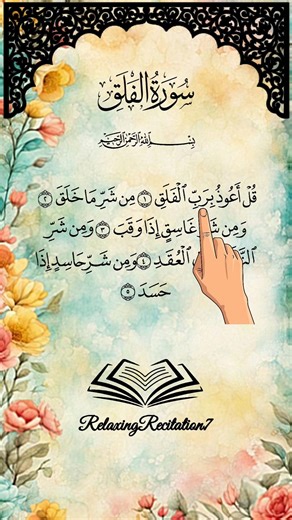 سُورَةُ الْفَلَقِ
بِسْمِ اللَّهِ الرَّحْمَٰنِ الرَّحِيمِ
قُلْ أَعُوذُ بِرَبِّ ٱلْفَلَقِ ١ مِن شَرِّ مَا خَلَقَ ٢
وَمِن شَرِّ غَاسِقٍ إِذَا وَقَبَ ٣ وَمِن شَرِّ
ٱلْعُقَدِ ٤ وَمِن شَرِّ حَاسِدٍ إِذَا
حَسَدَ ٥
RelaxingRecitation7